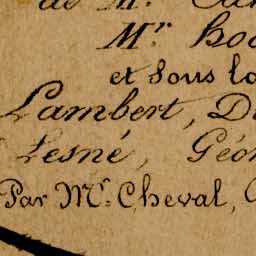 de M.
Mr
et sous la
Lambert,
Lesné, Géo
Par Mr. Cheval,